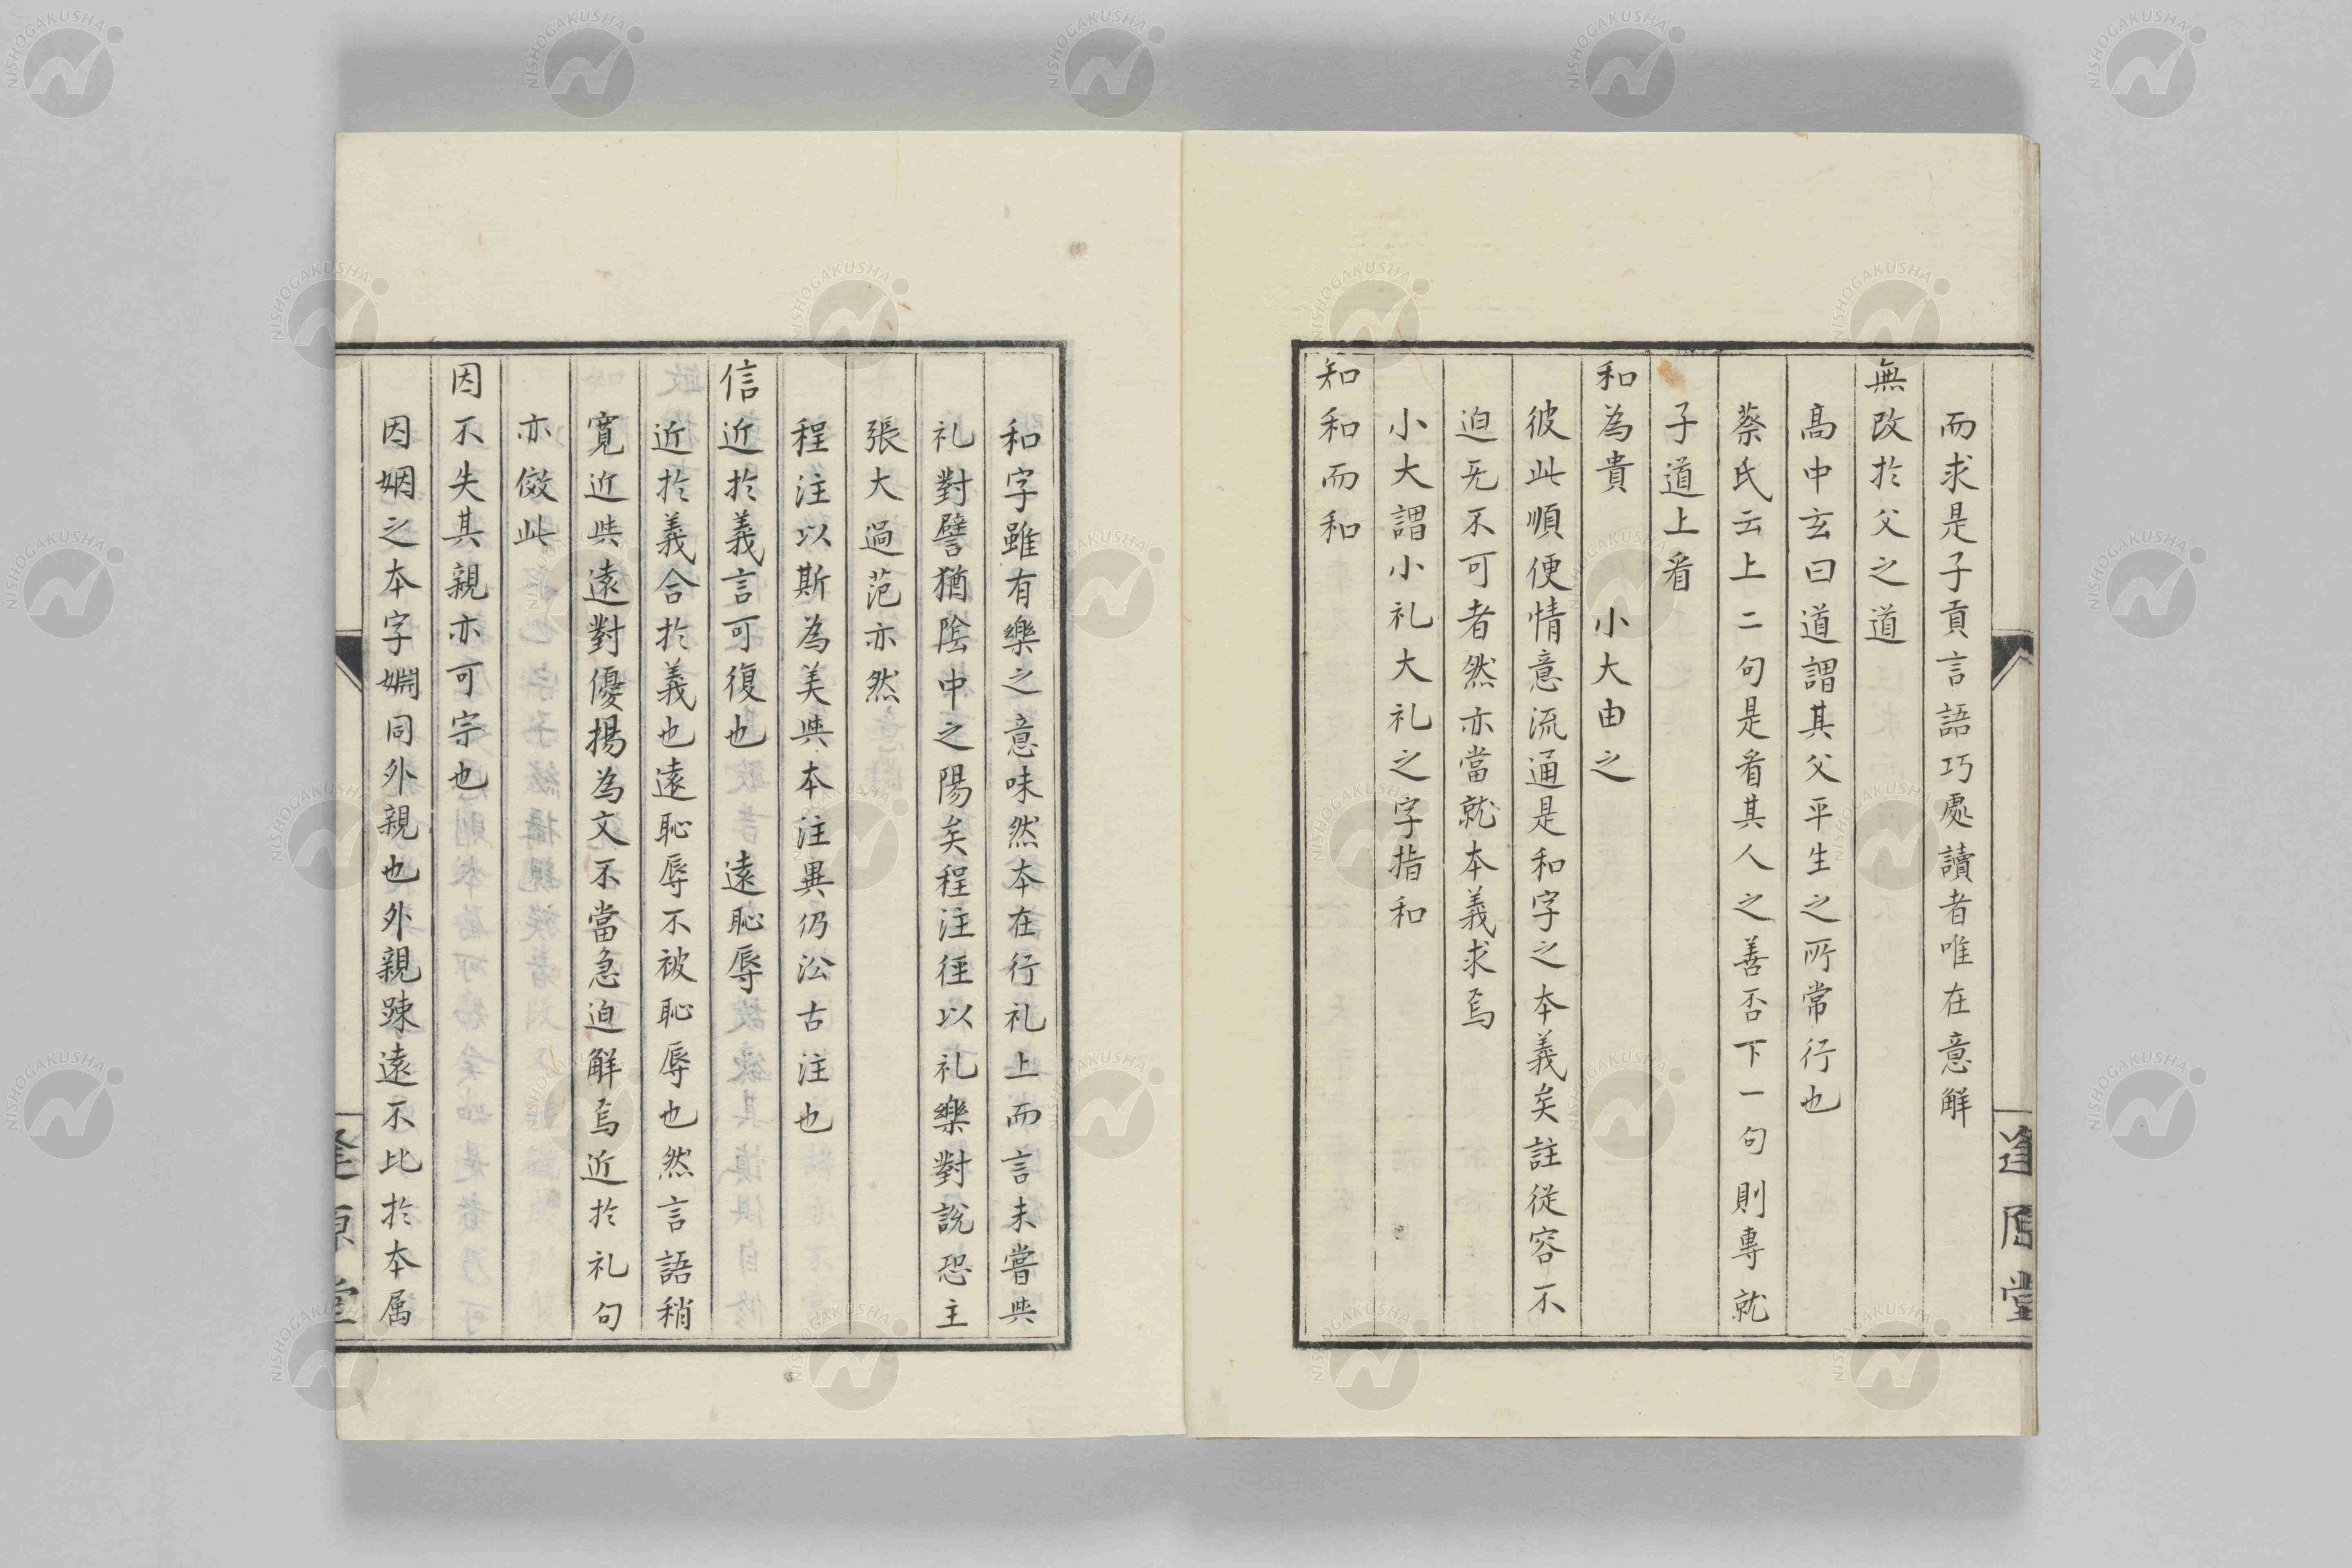 而求是子貢言語巧處讀者唯在意解
無改於父之道
高中玄曰道謂其父平生之所常行也
蔡氏云上二句是看其人之善否下一句則專就
子道上看
和為貴　小大由之
彼此順便情意流通是和字之本義矣註從容不
迫无不可者然亦當就本義求焉
小大謂小礼大礼之字指和
知和而和
和字雖有樂之意味然本在行礼上而言未嘗與
礼對譬猶陰中之陽矣程注徃以礼樂對說恐主
張大過范亦然
程注以斯為美與本注異仍沿古注也
信近於義言可復也　遠恥辱
近於義合於義也遠恥辱不被恥辱也然言語稍
寬近與遠對優揚為文不當急迫解焉近於礼句
亦倣此
因不失其親亦可宗也
因姻之本字婣同外親也外親踈遠不比於本属
逢原堂
NISHOGAKUSHA